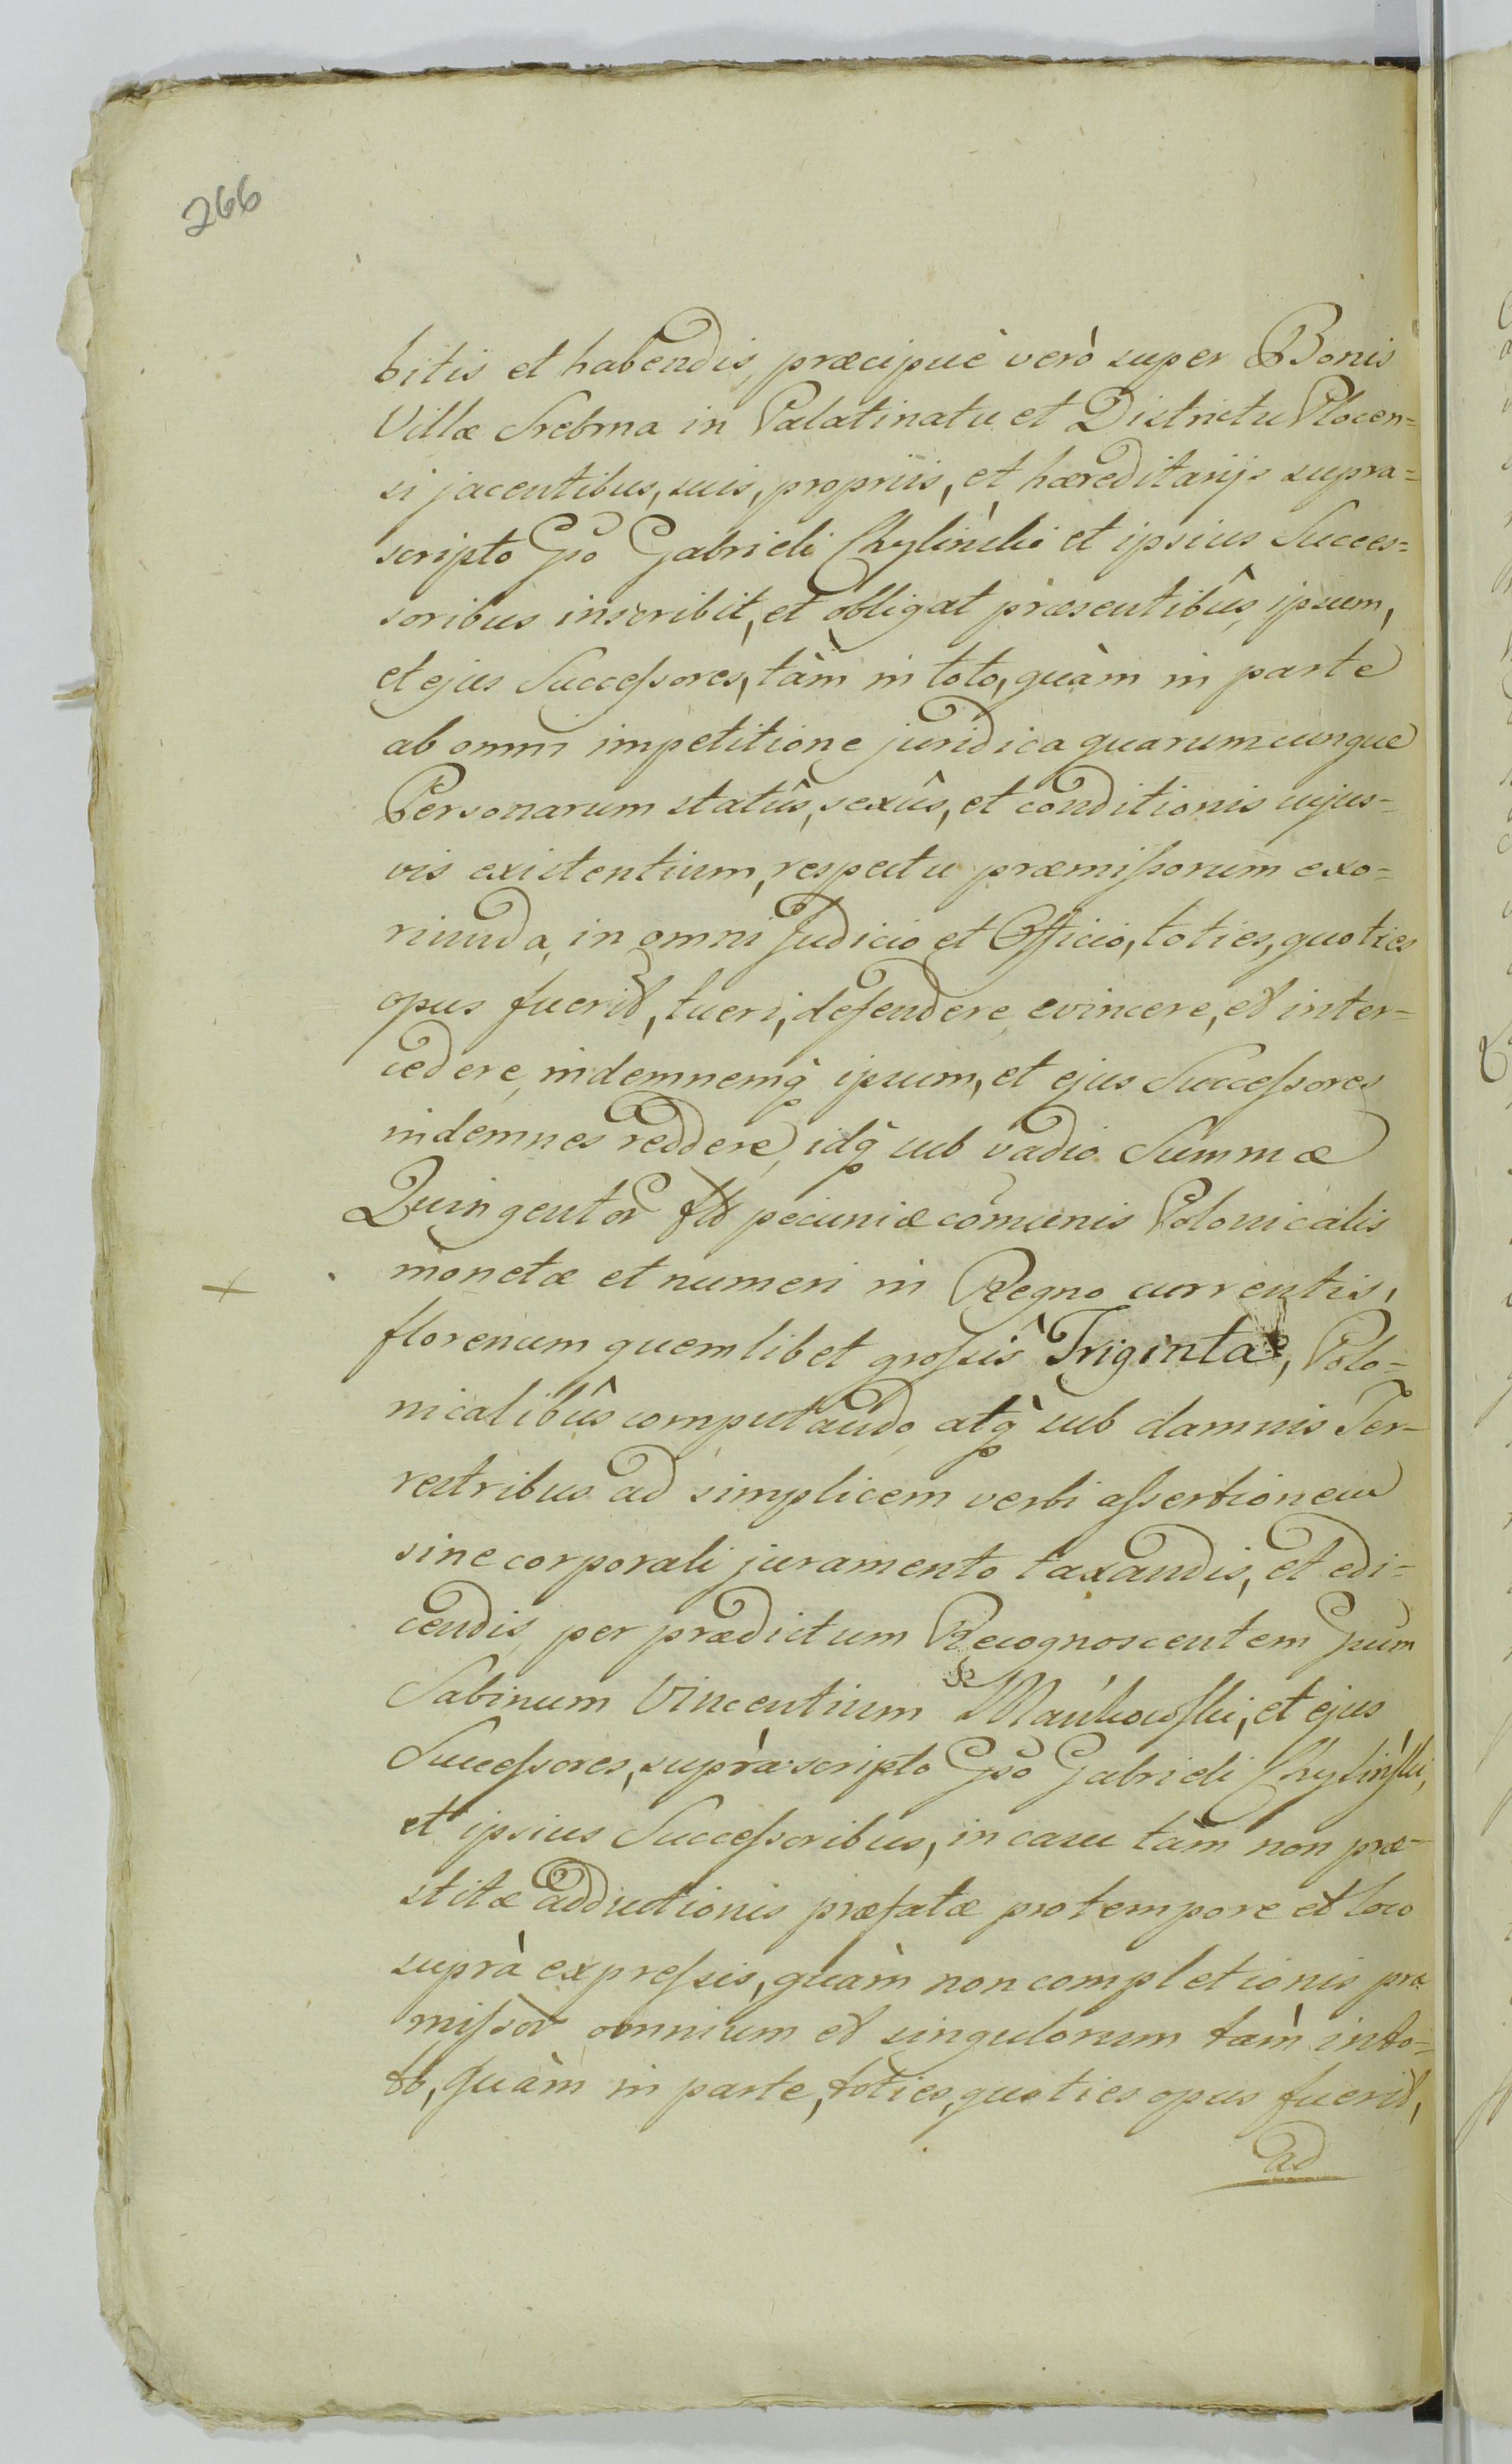 266
bitis et habendis, præcipuè verò super Bonis
Villæ Srebrna in Palatinatu et Districtu Plocen=
si jacentibus, suis, propriis, et hæreditarijs supra=
scripto Gso Gabrieli Chyliński et ipsius Succes=
soribus inscribit, et obligat præsentibûs, ipsum,
et ejus Successores, tàm in toto, quàm in parte
ab omni impetitione juridica quarumcunque
Personarum statûs, sexûs, et conditionis cujus=
vis existentium, respectu præmissorum exo=
riunda, in omni Judicio et Officio, toties, quoties
opus fuerit, tueri, defendere, evincere, et inter=
cedere, indemnemq̀ ipsum, et ejus Successores
indemnes reddere, idq̀ sub vadio Summæ
Quingentor flor pecuniæ com̃unis Polonicalis
monetæ et numeri in Regno currentis,
florenum quemlibet grossis Triginta, Polo=
nicalibûs computando, atq̀ sub damnis Ter=
restribus ad simplicem verbi assertionem
sine corporali juramento taxandis, et edi=
cendis, per prædictum Recognoscentem Gsum
Sabinum Vincentium Mańkowski, et ejus
Successores, supràscripto Gso Gabrieli Chyliński,
et ipsius Successoribus, in casu tàm non præ=
stitæ adductionis præfatæ pro tempore et loco
suprà expressis, quàm non completionis præ
missor omnium et singulorum tàm in to=
to, quàm in parte, toties, quoties opus fuerit,
ad